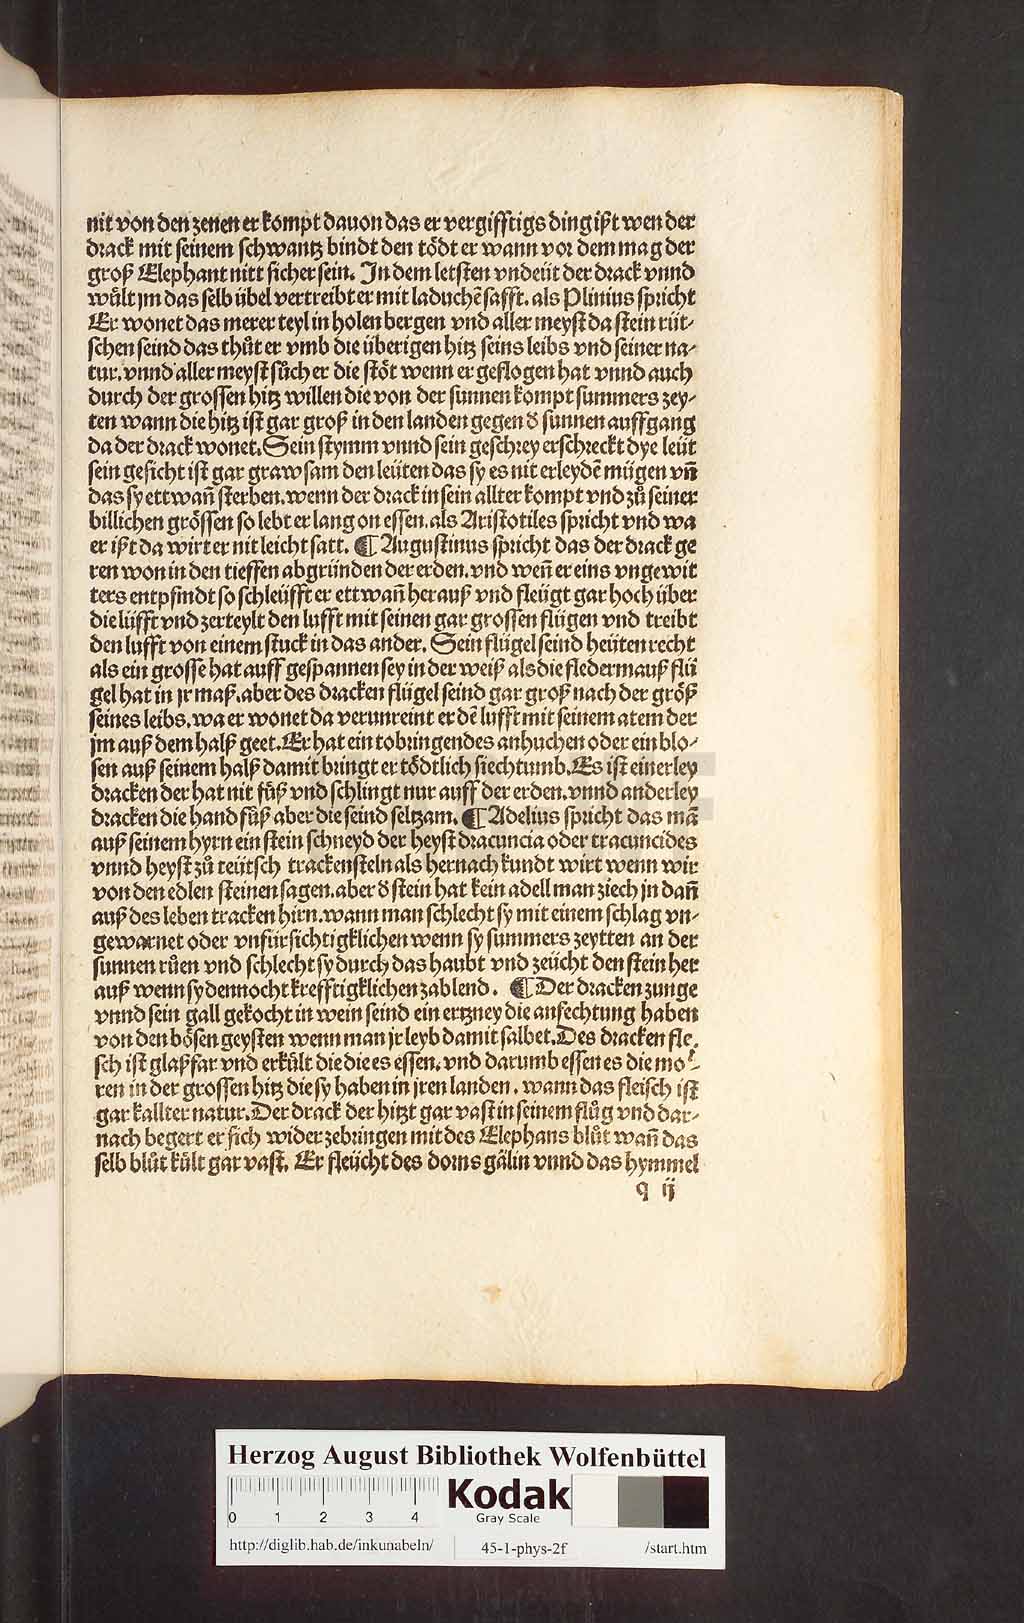 nit von den zenen er kompt dauon das er vergifftigs ding ißt wen der
drack mit seinem schwantz bindt den tödt er wann vor dem mag der
groß Elephant nitt sicher sein. In dem letsten vndeüt der drack vnnd
wůlt jm das selb übel vertreibt er mit laduchē safft. als Plinius spricht
Er wonet das merer teyl in holen bergen vnd aller meyst da stein rüt-
schen seind das thůt er vmb die überigen hitz seins leibs vnd seiner na-
tur. vnnd aller meyst sůch er die stöt wenn er geflogen hat vnnd auch
durch der grossen hitz willen die von der sunnen kompt summers zey-
ten wann die hitz ist gar groß in den landen gegen d̄ sunnen auffgang
da der drack wonet. Sein stymm vnnd sein geschrey erschreckt dye leüt
sein gesicht ist gar grawsam den leüten das sy es nit erleydē mügen vn̄
das sy ettwan̄ sterben. wenn der drack in sein allter kompt vnd zů seiner
billichen grössen so lebt er lang on essen. als Aristotiles spricht vnd wa
er ißt da wirt er nit leicht satt. ¶ Augustinus spricht das der drack ge
ren won in den tieffen abgründen der erden. vnd wen̄ er eins vngewit
ters entpfindt so schleüfft er ettwan̄ herauß vnd fleügt gar hoch über
die lüfft vnd zerteylt den lufft mit seinen gar grossen flügen vnd treibt
den lufft von einem stuck in das ander. Sein flügel seind heüten recht
als ein grosse hat auff gespannen sey in der weiß als die fledermauß flü
gel hat in jr maß. aber des dracken flügel seind gar groß nach der größ
seines leibs. wa er wonet da verunreint er dē lufft mit seinem atem der
jm auß dem halß geet. Er hat ein tobringendes anhuchen oder ein blo-
sen auß seinem halß damit bringt er tödtlich siechtumb. Es ist einerley
dracken der hat nit füß vnd schlingt nur auff der erden. vnnd anderley
dracken die hand füß aber die seind seltzam. ¶ Adelius spricht das mā
auß seinem hyrn ein stein schneyd der heyst dracuncia oder tracuncides
vnnd heyst zů teütsch trackensteln als hernach kundt wirt wenn wir
von den edlen steinen sagen. aber d̄ stein hat kein adell man ziech jn dan̄
auß des leben tracken hirn. wann man schlecht sy mit einem schlag vn-
gewarnet oder vnfürsichtigklichen wenn sy summers zeytten an der
sunnen růen vnd schlecht sy durch das haubt vnd zeücht den stein her
auß wenn sy dennocht krefftigklichen zablend. ¶ Der dracken zunge
vnnd sein gall gekocht in wein seind ein ertzney die anfechtung haben
von den bösen geysten wenn man jr leyb damit salbet. Des dracken fle-
sch ist glaßfar vnd erkůlt die die es essen. vnd darumb essen es die mo-
ren in der grossen hitz die sy haben in jren landen. wann das fleisch ist
gar kallter natur. Der drack der hitzt gar vast in seinem flůg vnd dar-
nach begert er sich wider zebringen mit des Elephans blůt wan̄ das
selb blůt kůlt gar vast. Er fleücht des dorns gälin vnnd das hymmel
q ij
Herzog August Bibliothek Wolfenbüttel
0 1 2 3 4
Kodak
Gray Scale
http://diglib.hab.de/inkunabeln/ 45-1-phys-2f /start.htm